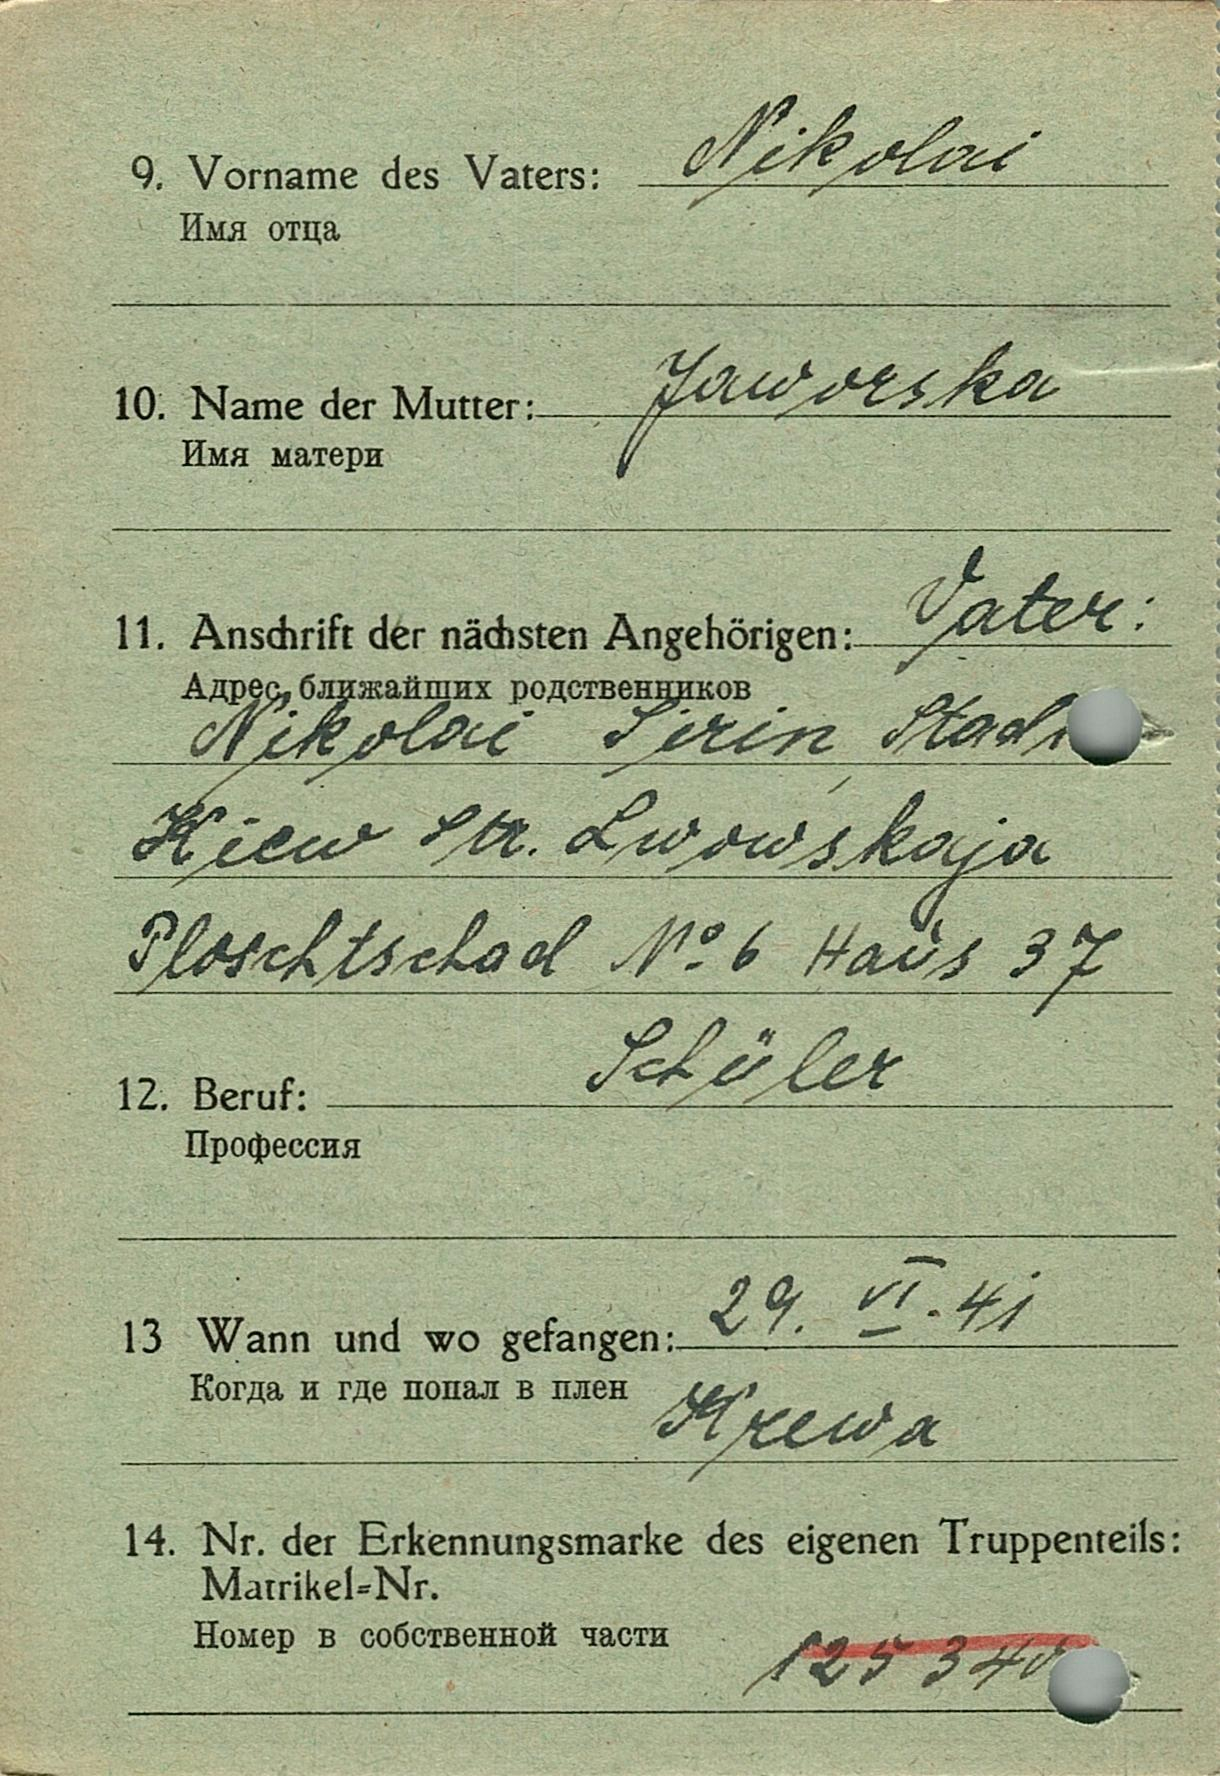 9. Vorname des Vaters: Nikolai
Имя отца
10. Name der Mutter: Jaworska
Имя матери
11. Anschrift der nächsten Angehörigen: Vater:
Адрес ближайших родственников
Nikolai Sirin, Stadt
Kiew Str. Lwowskaja
Ploschtschad № 6 Haus 37
12. Beruf: Schüler
Профессия
13 Wann und wo gefangen: 29. VI. 41
Когда и где попал в плен Krewa
14. Nr. der Erkennungsmarke des eigenen Truppenteils:
Matrikel=Nr.
Номер в собственной части
125340